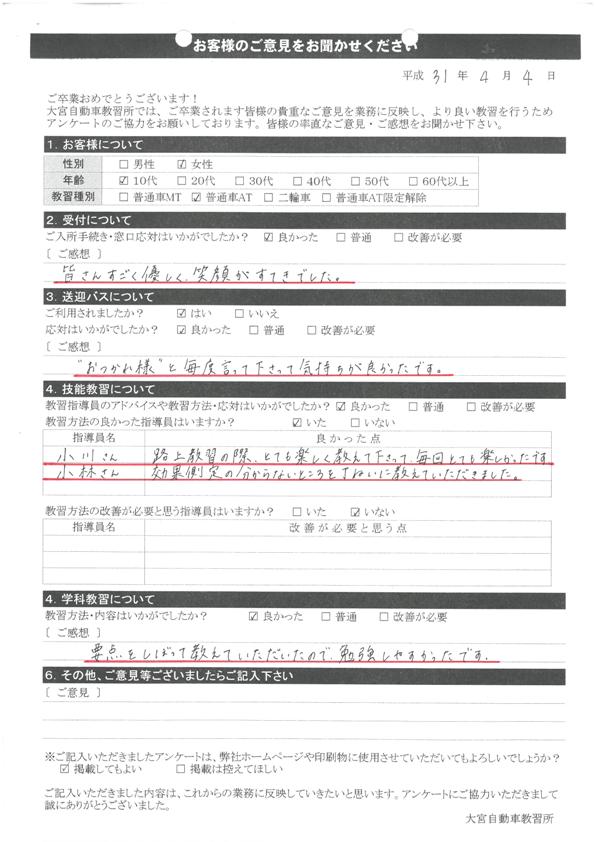 お客様のご意見をお聞かせください
平成 31 年 4 月 4 日
ご卒業おめでとうございます！
大宮自動車教習所では、ご卒業されます皆様の貴重なご意見を業務に反映し、より良い教習を行うため
アンケートのご協力をお願いしております。皆様の率直なご意見・ご感想をお聞かせ下さい。
1. お客様について
性別 □ 男性 ☑ 女性
年齢 ☑ 10代 □ 20代 □ 30代 □ 40代 □ 50代 □ 60代以上
教習種別 □ 普通車MT ☑ 普通車AT □ 二輪車 □ 普通車AT限定解除
2. 受付について
ご入所手続き・窓口応対はいかがでしたか？ ☑ 良かった □ 普通 □ 改善が必要
［ ご感想 ］
皆さんすごく優しく、笑顔がすてきでした。
3. 送迎バスについて
ご利用されましたか？ ☑ はい □ いいえ
応対はいかがでしたか？ ☑ 良かった □ 普通 □ 改善が必要
［ ご感想 ］
"おつかれ様"と毎度言って下さって気持ちが良かったです。
4. 技能教習について
教習指導員のアドバイスや教習方法・応対はいかがでしたか？ ☑ 良かった □ 普通 □ 改善が必要
教習方法の良かった指導員はいますか？ ☑ いた □ いない
指導員名 良かった点
小川さん 路上教習の際、とても楽しく教えて下さって、毎回とても楽しかったです
小林さん 効果測定の分からないところを丁ねいに教えていただきました。
教習方法の改善が必要と思う指導員はいますか？ □ いた ☑ いない
指導員名 改善が必要と思う点
4. 学科教習について
教習方法・内容はいかがでしたか？ ☑ 良かった □ 普通 □ 改善が必要
［ ご感想 ］
要点をしぼって教えていただいたので、勉強しやすかったです。
6. その他、ご意見等ございましたらご記入下さい
［ ご意見 ］
※ご記入いただきましたアンケートは、弊社ホームページや印刷物に使用させていただいてもよろしいでしょうか？
☑ 掲載してもよい □ 掲載は控えてほしい
ご記入いただきました内容は、これからの業務に反映していきたいと思います。アンケートにご協力いただきまして
誠にありがとうございました。
大宮自動車教習所